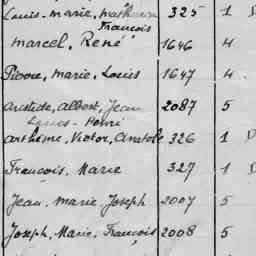 Louis, Marie, Mathurin 325 1
François
Marcel, René 1646 4
Pierre, Marie, Louis 1647 4
Aristide, Albert, Jean 2087 5
Louis-Henri
Arthème, Victor, Anatole 326 1
François, Marie 327 1
Jean, Marie, Joseph 2007 5
Joseph, Marie, François 2008 5